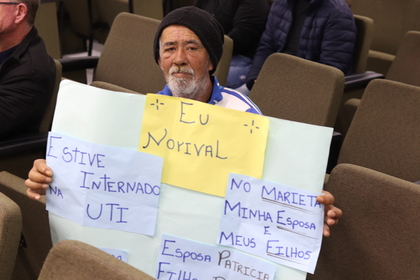 EU
NORIVAL
ESTIVE
INTERNADO
NA UTI
NO MARIETA
MINHA ESPOSA
E
MEUS FILHOS
ESPOSA PATRICIA
FILHO